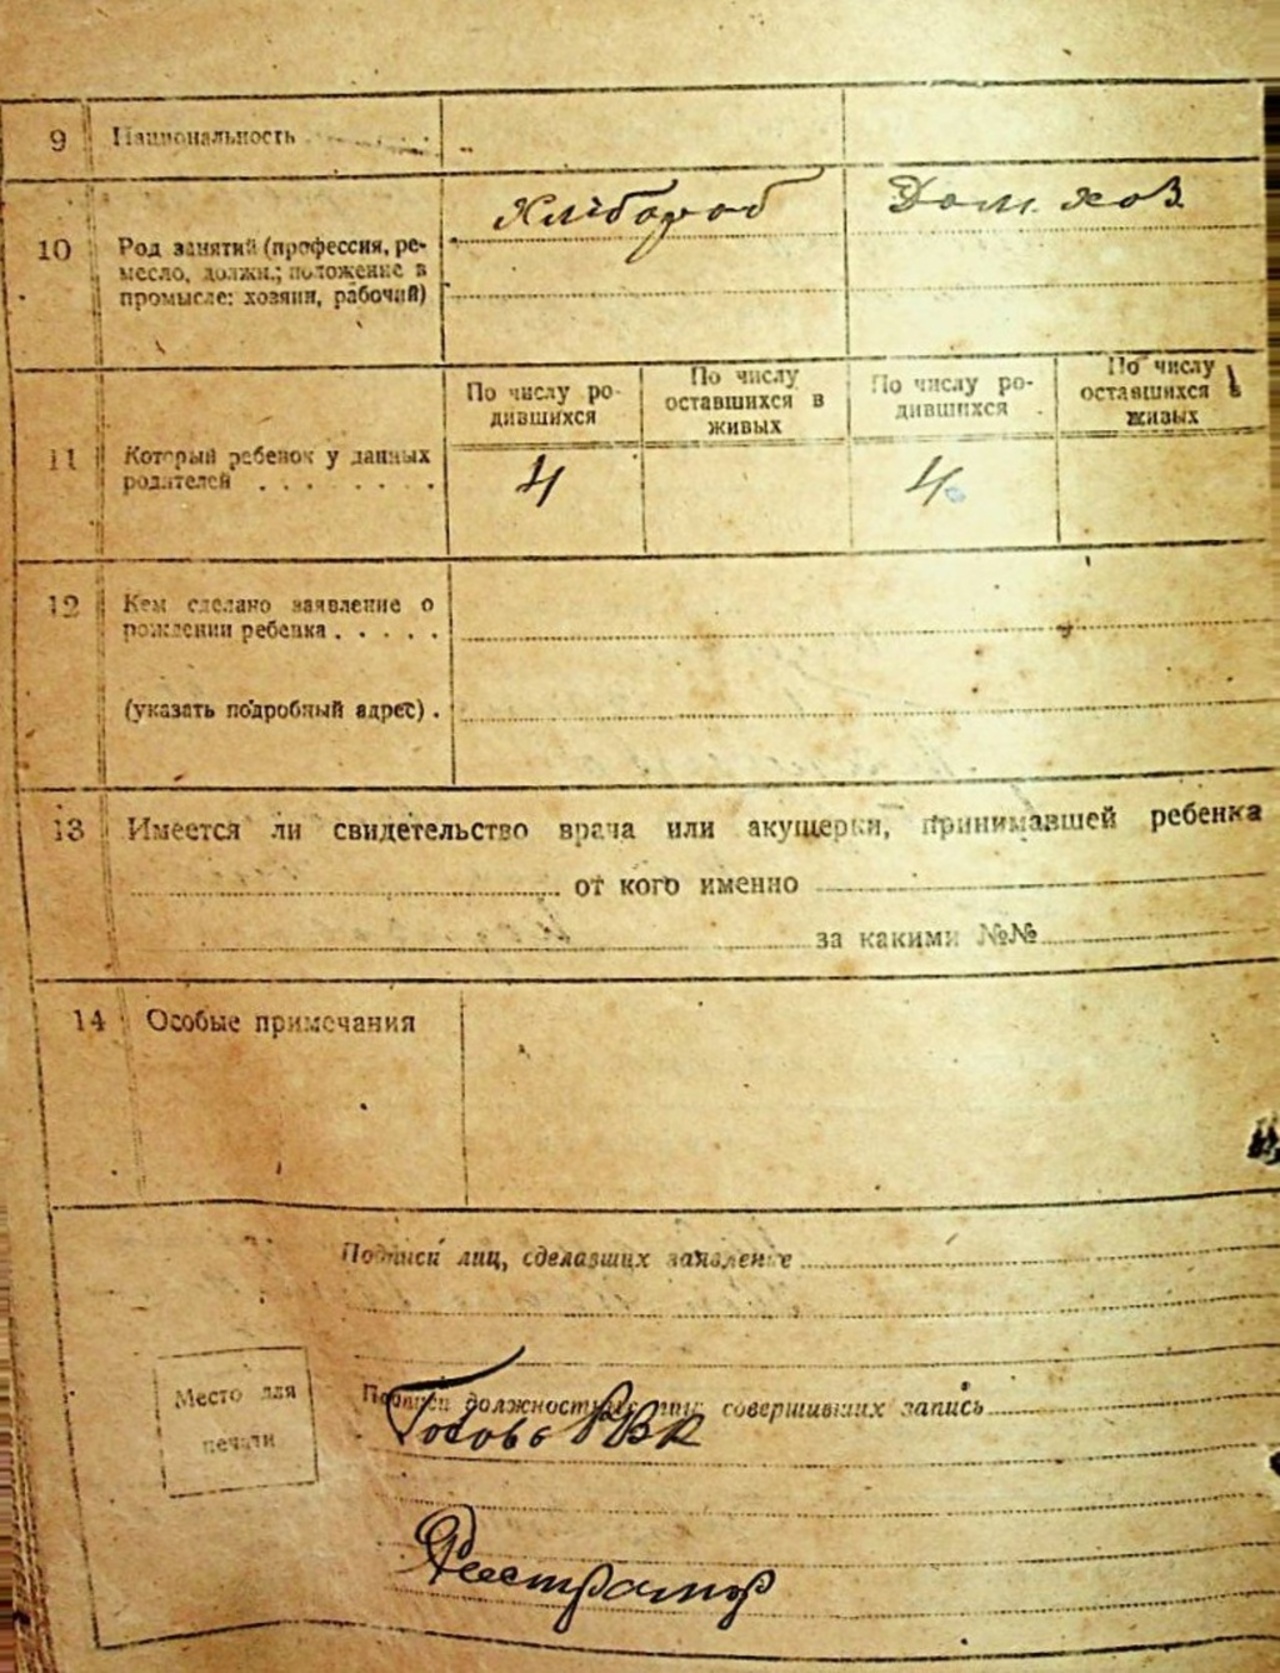 9 Национальность
Хлібороб Дом. хоз
10 Род занятий (профессия, ре-
месло, должн.; положение в
промысле: хозяин, рабочий)
По числу ро-
дившихся
По числу
оставшихся в
живых
По числу ро-
дившихся
По числу
оставшихся в
живых
11 Который ребенок у данных
родителей . . . . . . . .
4 4
12 Кем сделано заявление о
рождении ребенка . . . . .
(указать подробный адрес) .
13 Имеется ли свидетельство врача или акушерки, принимавшей ребенка
от кого именно
за какими №№
14 Особые примечания
Подписи лиц, сделавших заявление
Место для
печати
Подписи должностных лиц, совершивших запись
Голова РВК
Реєстратор